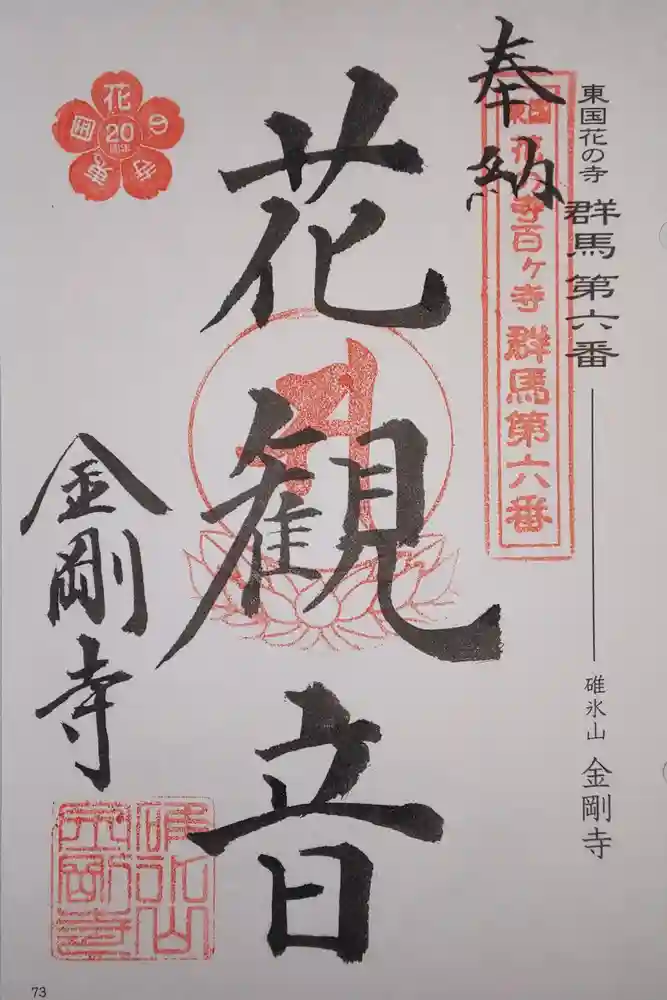 東国花の寺 群馬第六番 碓氷山 金剛寺
奉納
東国花の寺百ヶ寺 群馬第六番
花観音
金剛寺
碓氷山
金剛寺
東国花の寺
20
周年
73